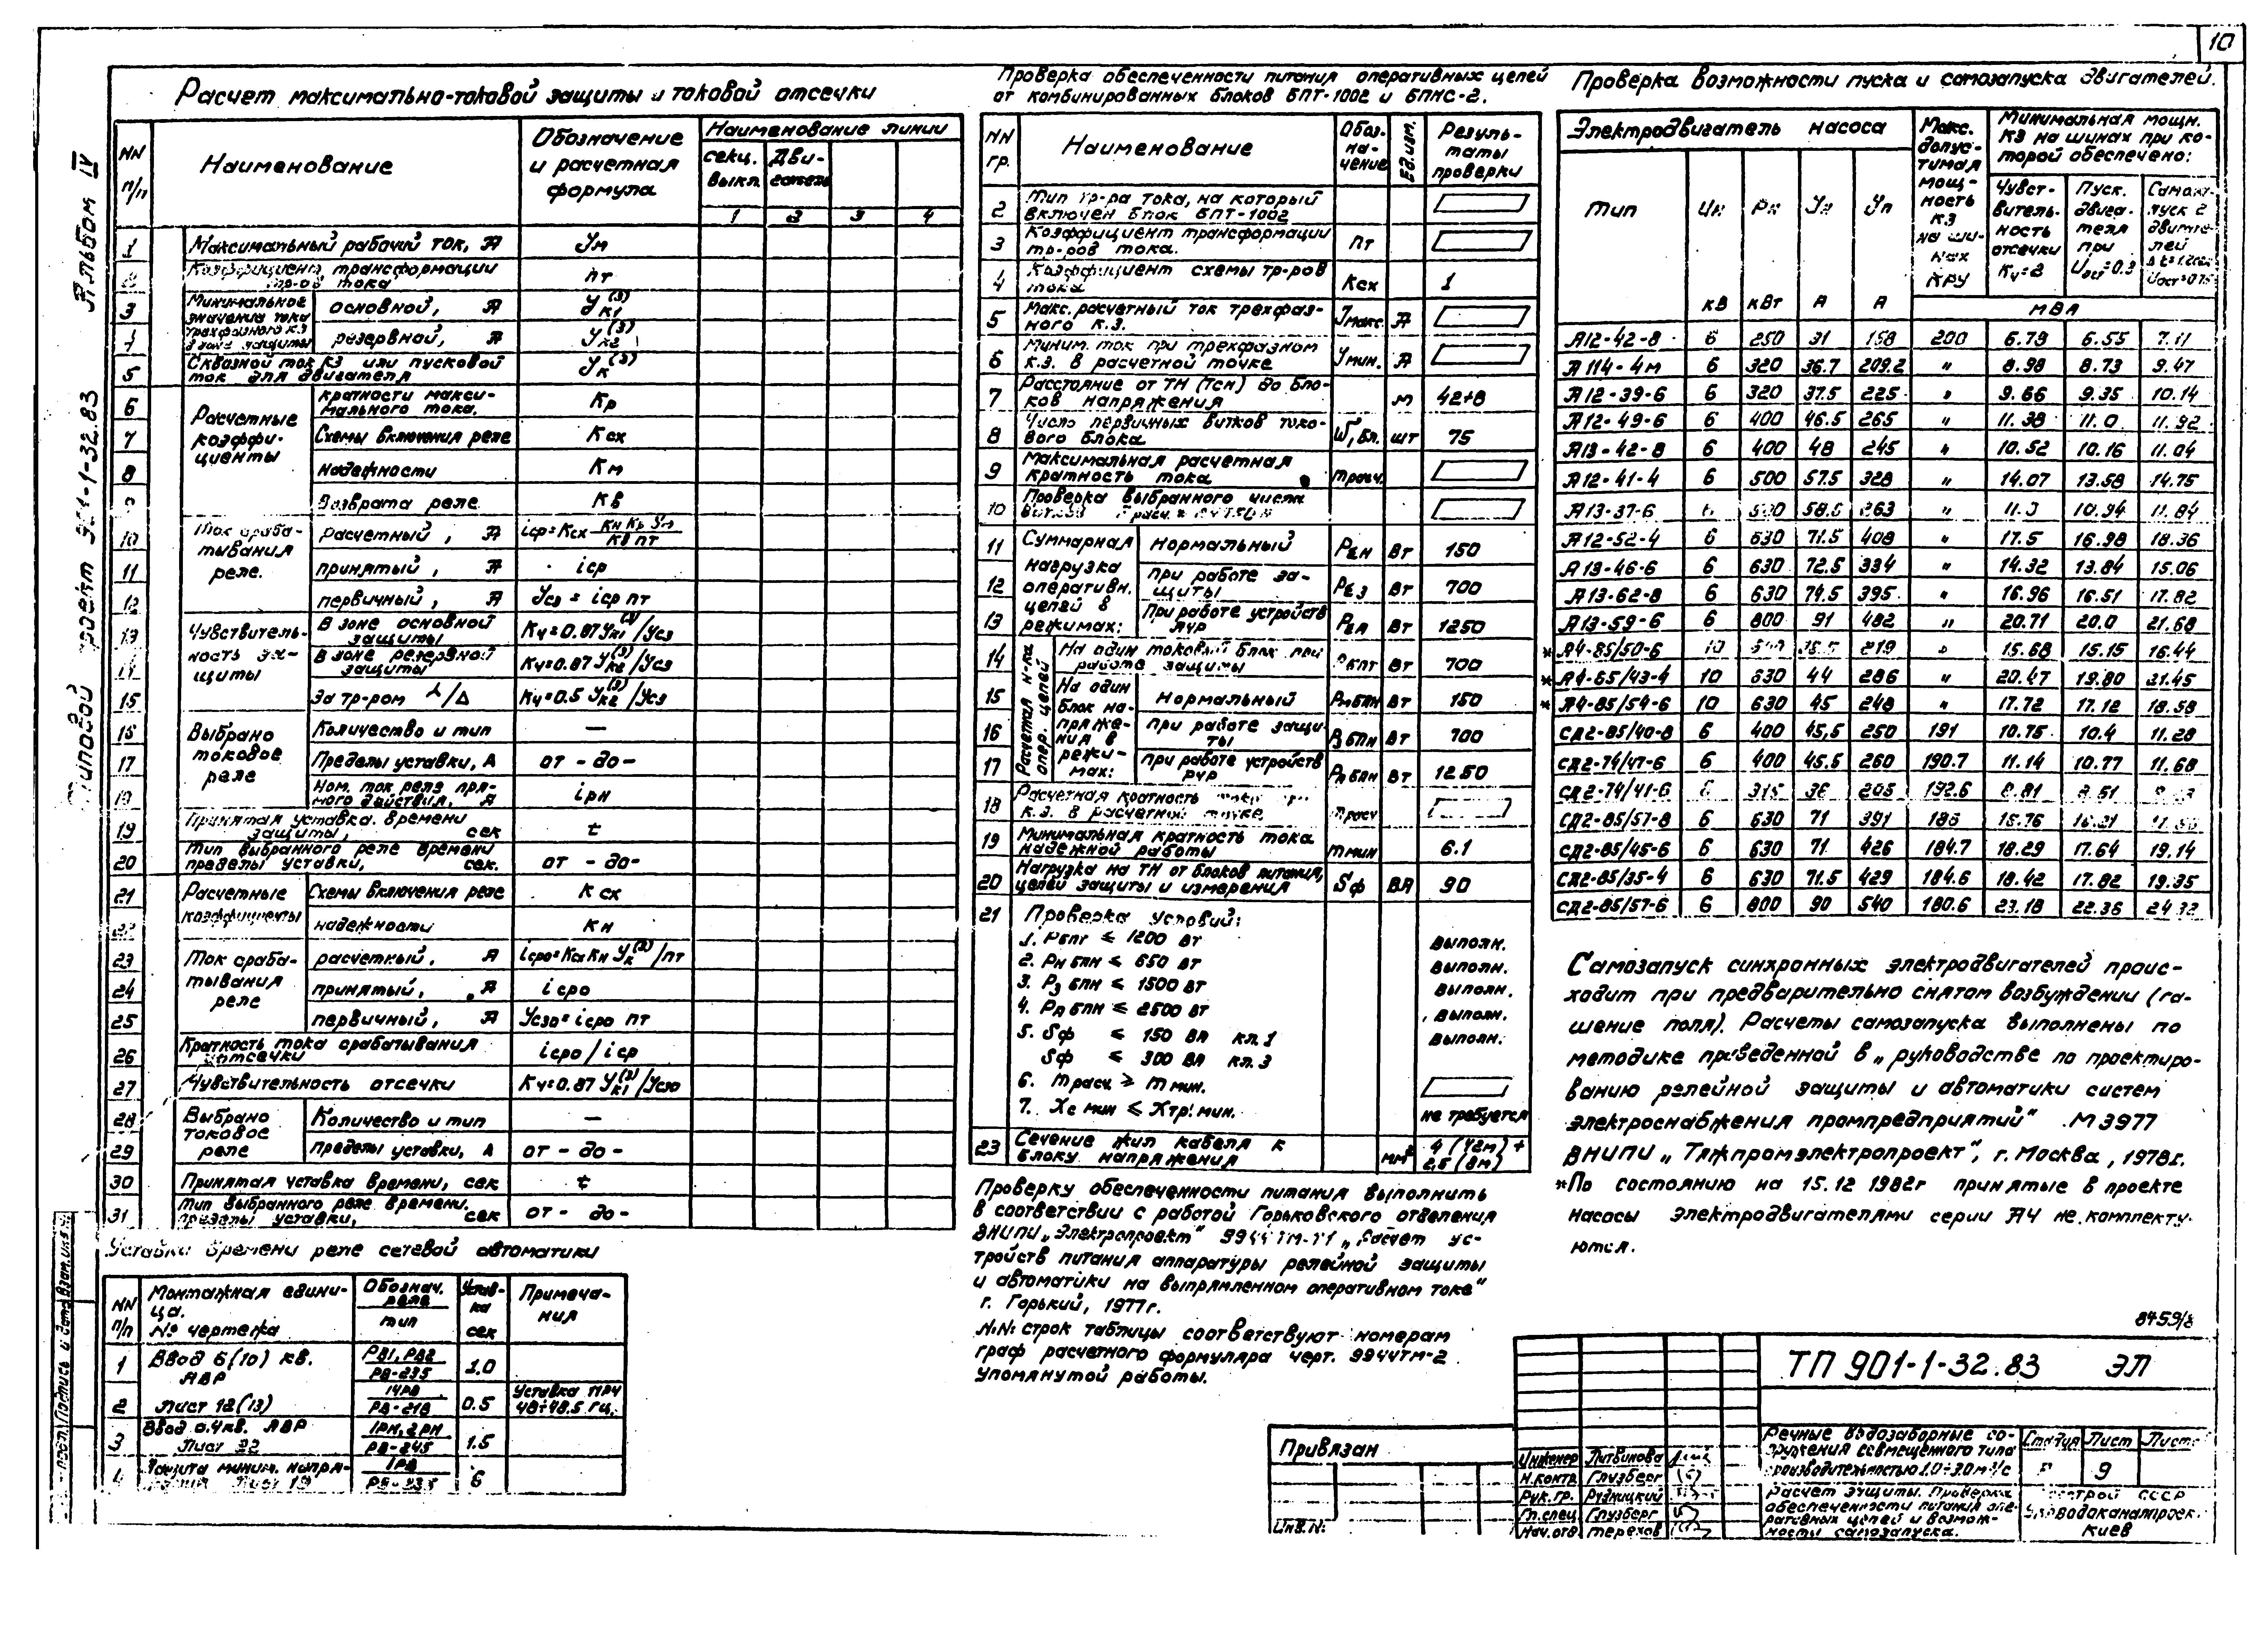 10
Альбом IV
Типовой проект 901-1-32.83
Расчет максимально-токовой защиты и токовой отсечки
NN п/п
Наименование
Обозначение и расчетная формула
Наименование линии
секц. выкл.
Двигатель
1 2 3 4
1 Максимальный рабочий ток, А Iм
Коэффициент трансформации тр-ов тока nт
Минимальное значение тока трехфазного к.з. в зоне защиты
3 основной, А Iк1(3)
4 резервной, А Iк2(3)
5 Сквозной ток КЗ или пусковой ток для двигателя Iк(3)
Расчетные коэффициенты
6 кратности максимального тока. Кр
7 Схемы включения реле Ксх
8 надежности Км
9 Возврата реле Кв
Ток срабатывания реле.
10 расчетный, А iср=Ксх Кн Кр Iм / Кв nт
11 принятый, А iср
12 первичный, А Iсз = iср nт
Чувствительность защиты
13 В зоне основной защиты Кч=0.87 Iк1(3)/Iсз
14 В зоне резервной защиты Кч=0.87 Iк2(3)/Iсз
15 За тр-ром ⅄/Δ Кч=0.5 Iк2(3)/Iсз
Выбрано токовое реле
16 Количество и тип —
17 Пределы уставки, А от - до -
18 Ном. ток реле прямого действия, А iрн
19 Принятая уставка времени защиты, сек t
20 Тип выбранного реле времени пределы уставки, сек. от - до-
Расчетные коэффициенты
21 Схемы включения реле Ксх
22 надежности Кн
Ток срабатывания реле
23 расчетный, А iсро=Ксх Кн Iк(3)/nт
24 принятый, А iсро
25 первичный, А Iсзо=iсро nт
26 Кратность тока срабатывания отсечки iсро/iср
27 Чувствительность отсечки Кч=0.87 Iк1(3)/Iсзо
Выбрано токовое реле
28 Количество и тип —
29 Пределы уставки, А от - до -
30 Принятая уставка времени, сек t
31 Тип выбранного реле времени. пределы уставки, сек от - до-
Уставки времени реле сетевой автоматики
NN п/п
Монтажная единица. № чертежа
Обознач. реле тип
Уставка сек
Примечания
1 Ввод 6(10) кв. АВР РВ1, РВ2 РВ-235 1.0
2 Лист 12(13) 14РВ РВ-218 0.5 Уставка ПРЧ 48÷48.5 Гц.
3 Ввод 0.4кв. АВР Лист 22 1РН, 2РН РВ-245 1.5
4 Защита миним. напряжения Лист 19 1РВ РВ-235 6
Проверка обеспеченности питания оперативных цепей
от комбинированных блоков БПТ-1002 и БПНС-2.
NN гр.
Наименование
Обозначение
Ед.изм.
Результаты проверки
2 Тип тр-ра тока, на который включен блок БПТ-1002
3 Коэффициент трансформации тр-ров тока. nт
4 Коэффициент схемы тр-ров тока Ксх 1
5 Макс. расчетный ток трехфазного к.з. Iмакс. А
6 Миним. ток при трехфазном к.з. в расчетной точке Iмин. А
7 Расстояние от ТН (ТСН) до блоков напряжения м 42+8
8 Число первичных витков токового блока W1бл. шт 75
9 Максимальная расчетная кратность тока mрасч.
10 Проверка выбранного числа витков
Суммарная нагрузка оперативн. цепей в режимах:
11 Нормальный РΣН Вт 150
12 при работе защиты РΣЗ Вт 700
13 При работе устройств АЧР РΣА Вт 1250
Расчетная н-ка опер. цепей
14 На один токовый блок при работе защиты Рбпт Вт 700
На один блок напряжения в режимах:
15 Нормальный РНбпн Вт 150
16 при работе защиты РЗбпн Вт 700
17 при работе устройств АЧР РАбпн Вт 1250
18 Расчетная кратность тока при к.з. в расчетной точке mрасч
19 Минимальная кратность тока надежной работы mмин 6.1
20 Нагрузка на ТН от блоков питания, цепей защиты и измерения Sф ВА 90
21 Проверка условий:
1. Рбпт ≤ 1200 Вт выполн.
2. РН бпн ≤ 650 Вт выполн.
3. РЗ бпн ≤ 1500 Вт выполн.
4. РА бпн ≤ 2500 Вт выполн.
5. Sф ≤ 150 ВА кл.1 выполн.
Sф ≤ 300 ВА кл.3
6. mрасч ≥ mмин.
7. Хс мин ≤ Хтр. мин. не требуется
23 Сечение жил кабеля к блоку напряжения мм² 4 (42м) + 2,5 (8м)
Проверку обеспеченности питания выполнить
в соответствии с работой Горьковского отделения
ВНИПИ „Электропроект" 9944тм-т1 „Расчет ус-
тройств питания аппаратуры релейной защиты
и автоматики на выпрямленном оперативном токе"
г. Горький, 1977г.
N.N: строк таблицы соответствуют номерам
граф расчетного формуляра черт. 9944тм-2
упомянутой работы.
Проверка возможности пуска и самозапуска двигателей.
Электродвигатель насоса
Макс. допустимая мощность КЗ на шинах КРУ
Минимальная мощн. КЗ на шинах при которой обеспечено:
Тип Uн Рн Iн Iп
Чувствительность отсечки Кч=2
Пуск. двигателя при
Самозапуск 2 двигателей
кВ кВт А А МВА
А12-42-8 6 250 31 158 200 6.79 6.55 7.11
А114-4м 6 320 36.7 209.2 " 8.98 8.73 9.47
А12-39-6 6 320 37.5 225 " 9.66 9.35 10.14
А12-49-6 6 400 46.5 265 " 11.38 11.0 11.92
А13-42-8 6 400 48 245 " 10.52 10.16 11.04
А12-41-4 6 500 57.5 328 " 14.07 13.58 14.75
А13-37-6 6 500 58.5 263 " 11.3 10.94 11.84
А12-52-4 6 630 71.5 408 " 17.5 16.98 18.36
А13-46-6 6 630 72.5 334 " 14.32 13.84 15.06
А13-62-8 6 630 74.5 395 " 16.96 16.51 17.82
А13-59-6 6 800 91 482 " 20.71 20.0 21.68
*А4-85/50-6 10 219 " 15.68 15.15 16.44
*А4-85/43-4 10 630 44 286 " 20.47 19.80 21.45
*А4-85/54-6 10 630 45 248 " 17.72 17.12 18.58
СД2-85/40-8 6 400 45,5 250 191 10.75 10.4 11.28
СД2-74/47-6 6 400 45.5 260 190.7 11.14 10.77 11.68
СД2-74/41-6 6 315 36 205 192.6 8.81 8.51
СД2-85/57-8 6 630 71 391
СД2-85/45-6 6 630 71 426 184.7 18.29 17.64 19.14
СД2-85/35-4 6 630 71.5 429 184.6 18.42 17.82 19.35
СД2-85/57-6 6 800 90 540 180.6 23.18 22.36 24.32
Самозапуск синхронных электродвигателей проис-
ходит при предварительно снятом возбуждении (га-
шение поля). Расчеты самозапуска выполнены по
методике приведенной в „руководстве по проектиро-
ванию релейной защиты и автоматики систем
электроснабжения промпредприятий" М3977
ВНИПИ „Тяжпромэлектропроект", г. Москва, 1978г.
*По состоянию на 15.12 1982г принятые в проекте
насосы электродвигателями серии А4 не комплекту-
ются.
8459/8
ТП 901-1-32.83 ЭЛ
Привязан
Инв.N:
Инженер Литвинова
Н.контр. Глузберг
Рук.гр. Рудницкий
Гл.спец. Глузберг
Нач.отд. Терехов
Речные водозаборные со-
оружения совмещенного типа
производительностью 1.0÷3.0м³/с
Стадия Лист Листов
Р 9
Расчет защиты. Проверка
обеспеченности питания опе-
ративных цепей и возмож-
ности самозапуска.
Госстрой СССР
Укрводоканалпроект
Киев
Подпись и дата Взам.инв.N